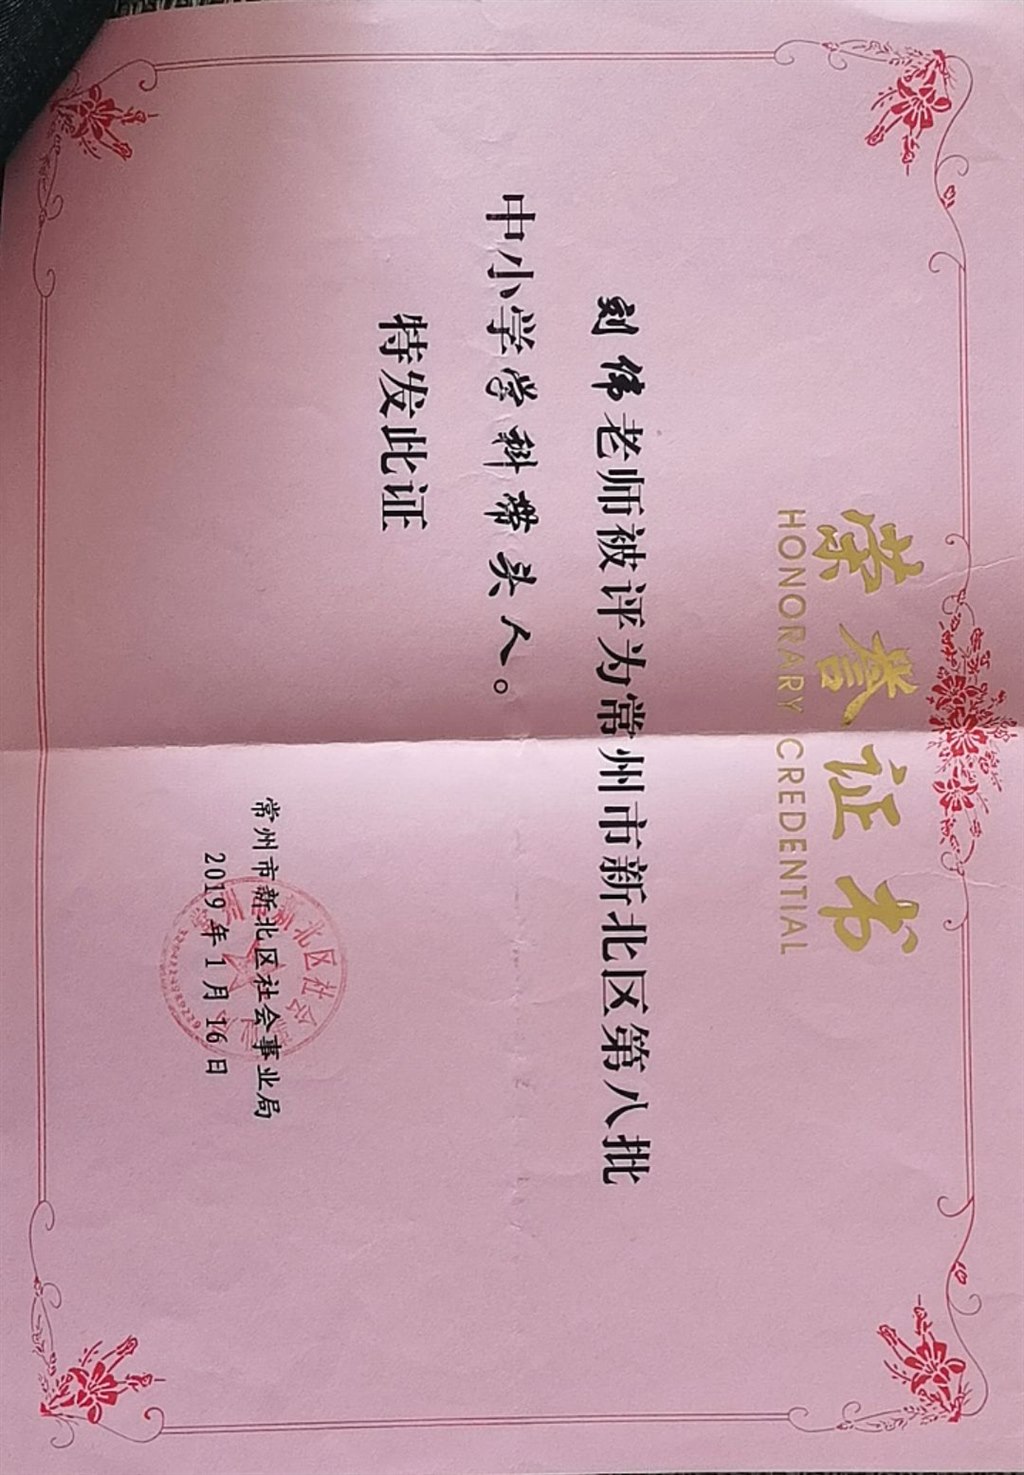 荣誉证书
HONORARY CREDENTIAL
刘伟老师被评为常州市新北区第八批
中小学学科带头人。
特发此证
常州市新北区社会事业局
2019年1月16日